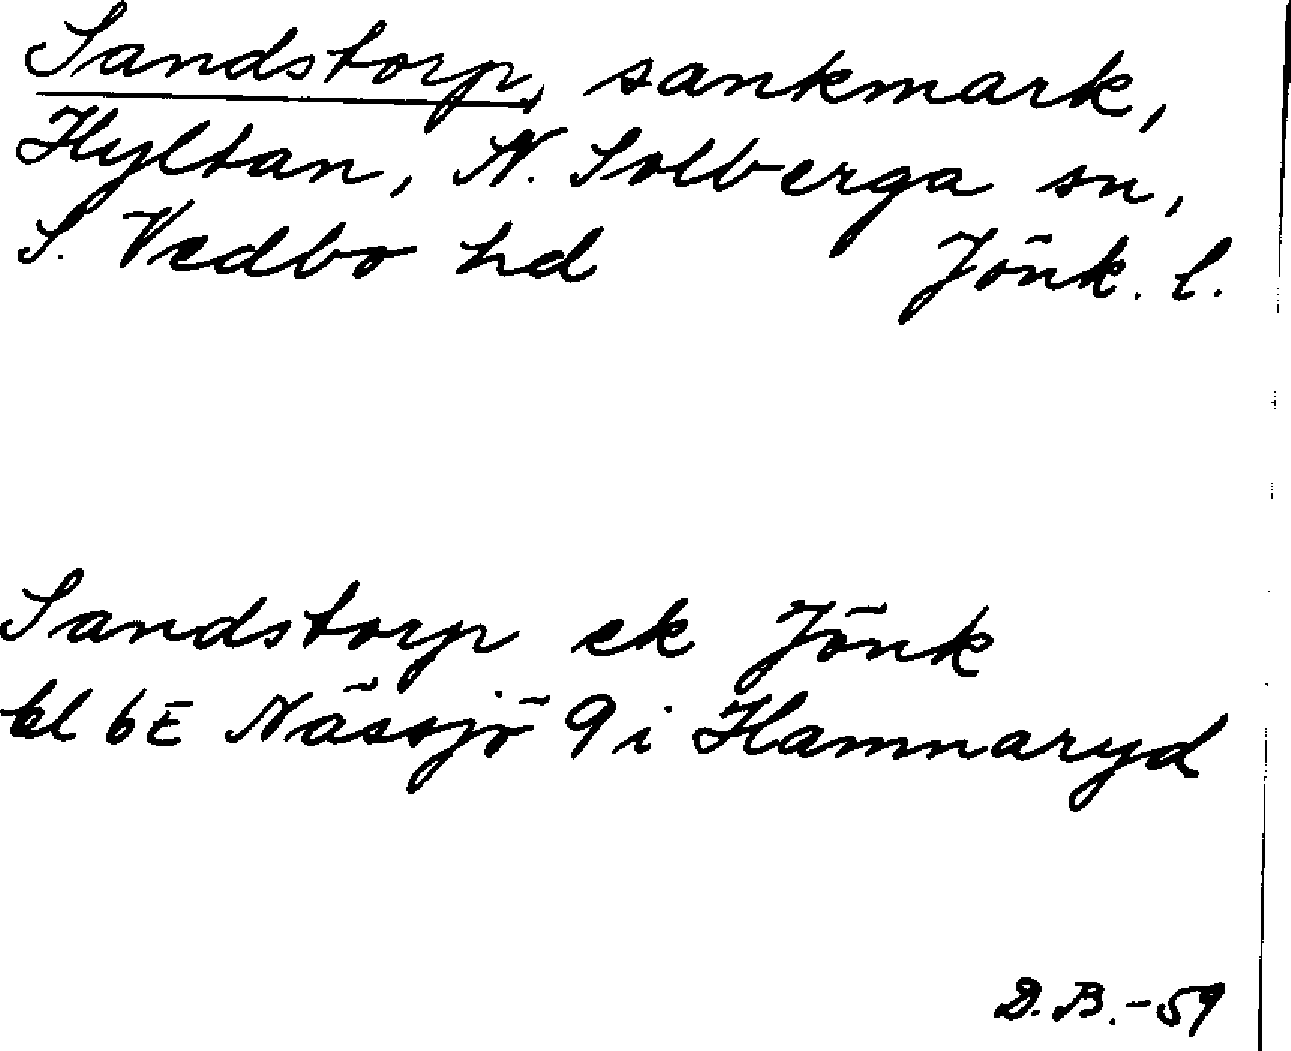 Sandstorp, sankmark,
Hyltan, N. Solberga sn,
S. Vedbo hd Jönk. l.
Sandstorp ek Jönk
bl 6E Nässjö 9 i Hamnaryd
D.B.-59